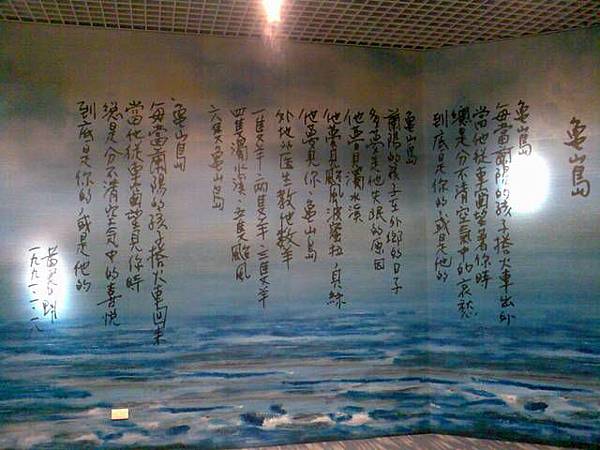 龜山島
龜山島
每當蘭陽的孩子搭火車出外
當他從車窗望著你時
總是分不清空氣中的哀愁
到底是你的,或是他的
龜山島
蘭陽的孩子在外鄉的日子
多夢是他失眠的原因
他夢見濁水溪
他夢見颱風波蜜拉·貝絲
他夢見你·龜山島
外地的医生教他數羊
一隻羊·兩隻羊·三隻羊
四隻濁水溪·五隻颱風
六隻龜山島
龜山島
每當蘭陽的孩子搭火車回來
當他從車窗望見你時
總是分不清空氣中的喜悅
到底是你的,或是他的
黃春明
一九九一